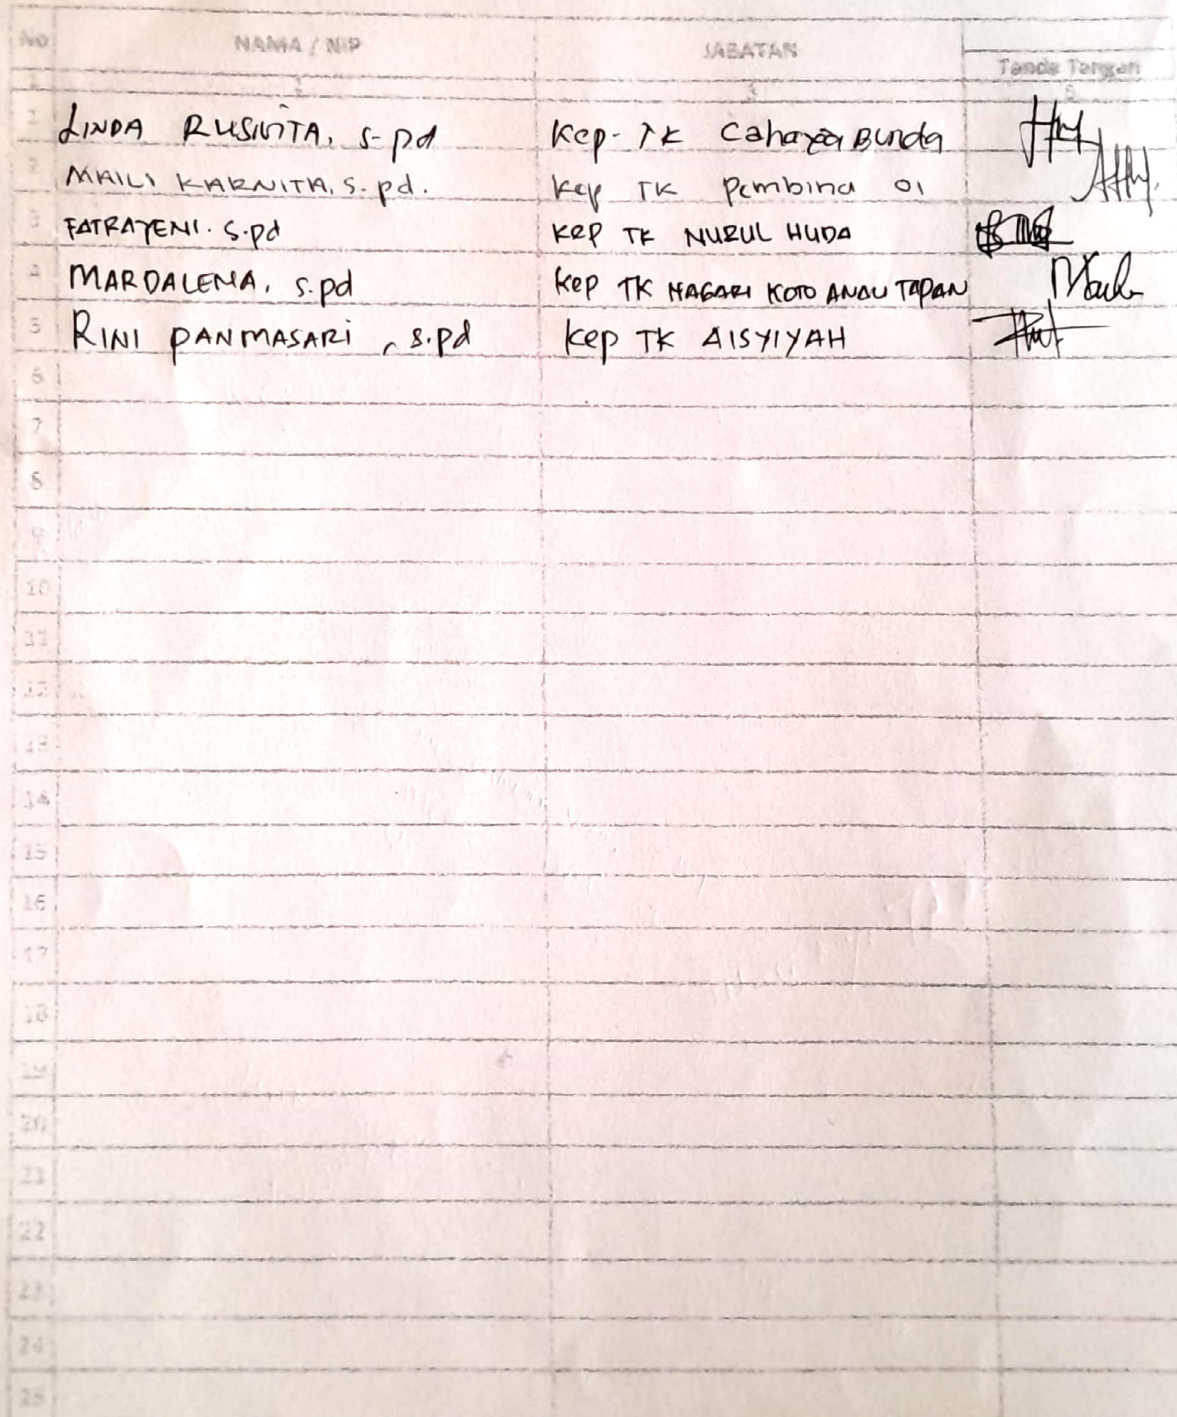 No NAMA / NIP JABATAN
Tanda Tangan
1 2 3
1 LINDA RUSIVITA, S-pd Kep- TK Cahaya Bunda
2 MAILI KARNITA, S.pd. Kep TK Pembina 01
3 FATRAYENI. S.pd KEP TK NURUL HUDA
4 MARDALENA, S.pd Kep TK NAGARI KOTO ANAU TAPAN
5 RINI PANMASARI, S.pd Kep TK AISYIYAH
6
7
8
9
10
11
12
13
14
15
16
17
18
19
20
21
22
23
24
25